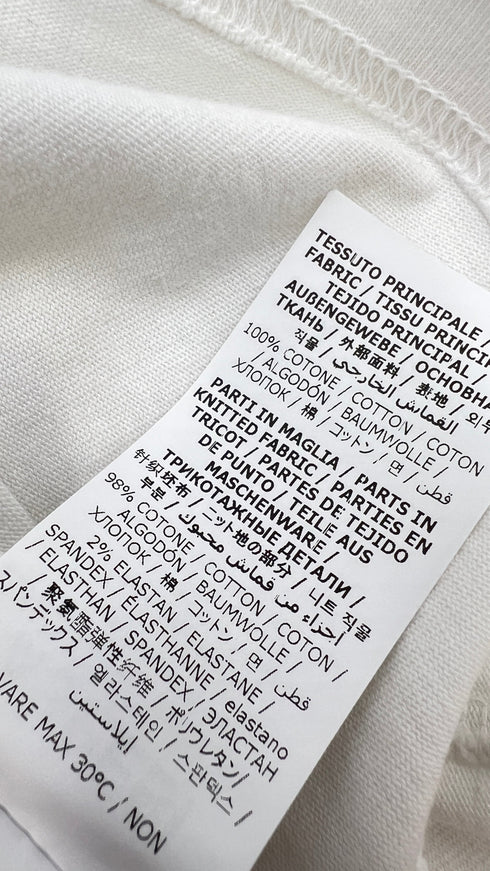 TESSUTO PRINCIPALE /
FABRIC / TISSU PRINCIP
TEJIDO PRINCIPAL /
AUßENGEWEBE / ОСНОВНА
ТКАНЬ / 外部面料 / 表地 / 외부
직물 / القماش الخارجي
100% COTONE / COTTON / COTON
/ ALGODÓN / BAUMWOLLE /
ХЛОПОК / 棉 / コットン / 면 / قطن
PARTI IN MAGLIA / PARTS IN
KNITTED FABRIC / PARTIES EN
TRICOT / PARTES DE TEJIDO
DE PUNTO / TEILE AUS
MASCHENWARE /
ТРИКОТАЖНЫЕ ДЕТАЛИ /
针织坯布 / ニット地の部分 / 니트 직물
부분 / أجزاء من قماش محبوك
98% COTONE / COTTON / COTON /
ALGODÓN / BAUMWOLLE /
ХЛОПОК / 棉 / コットン / 면 / قطن
2% ELASTAN / ELASTANE /
SPANDEX / ÉLASTHANNE / elastano
/ ELASTHAN / SPANDEX / ЭЛАСТАН
/ 聚氨酯弹性纤维 / ポリウレタン/
スパンデックス / 엘라스테인 / 스판덱스 /
إيلاستين
VARE MAX 30°C / NON